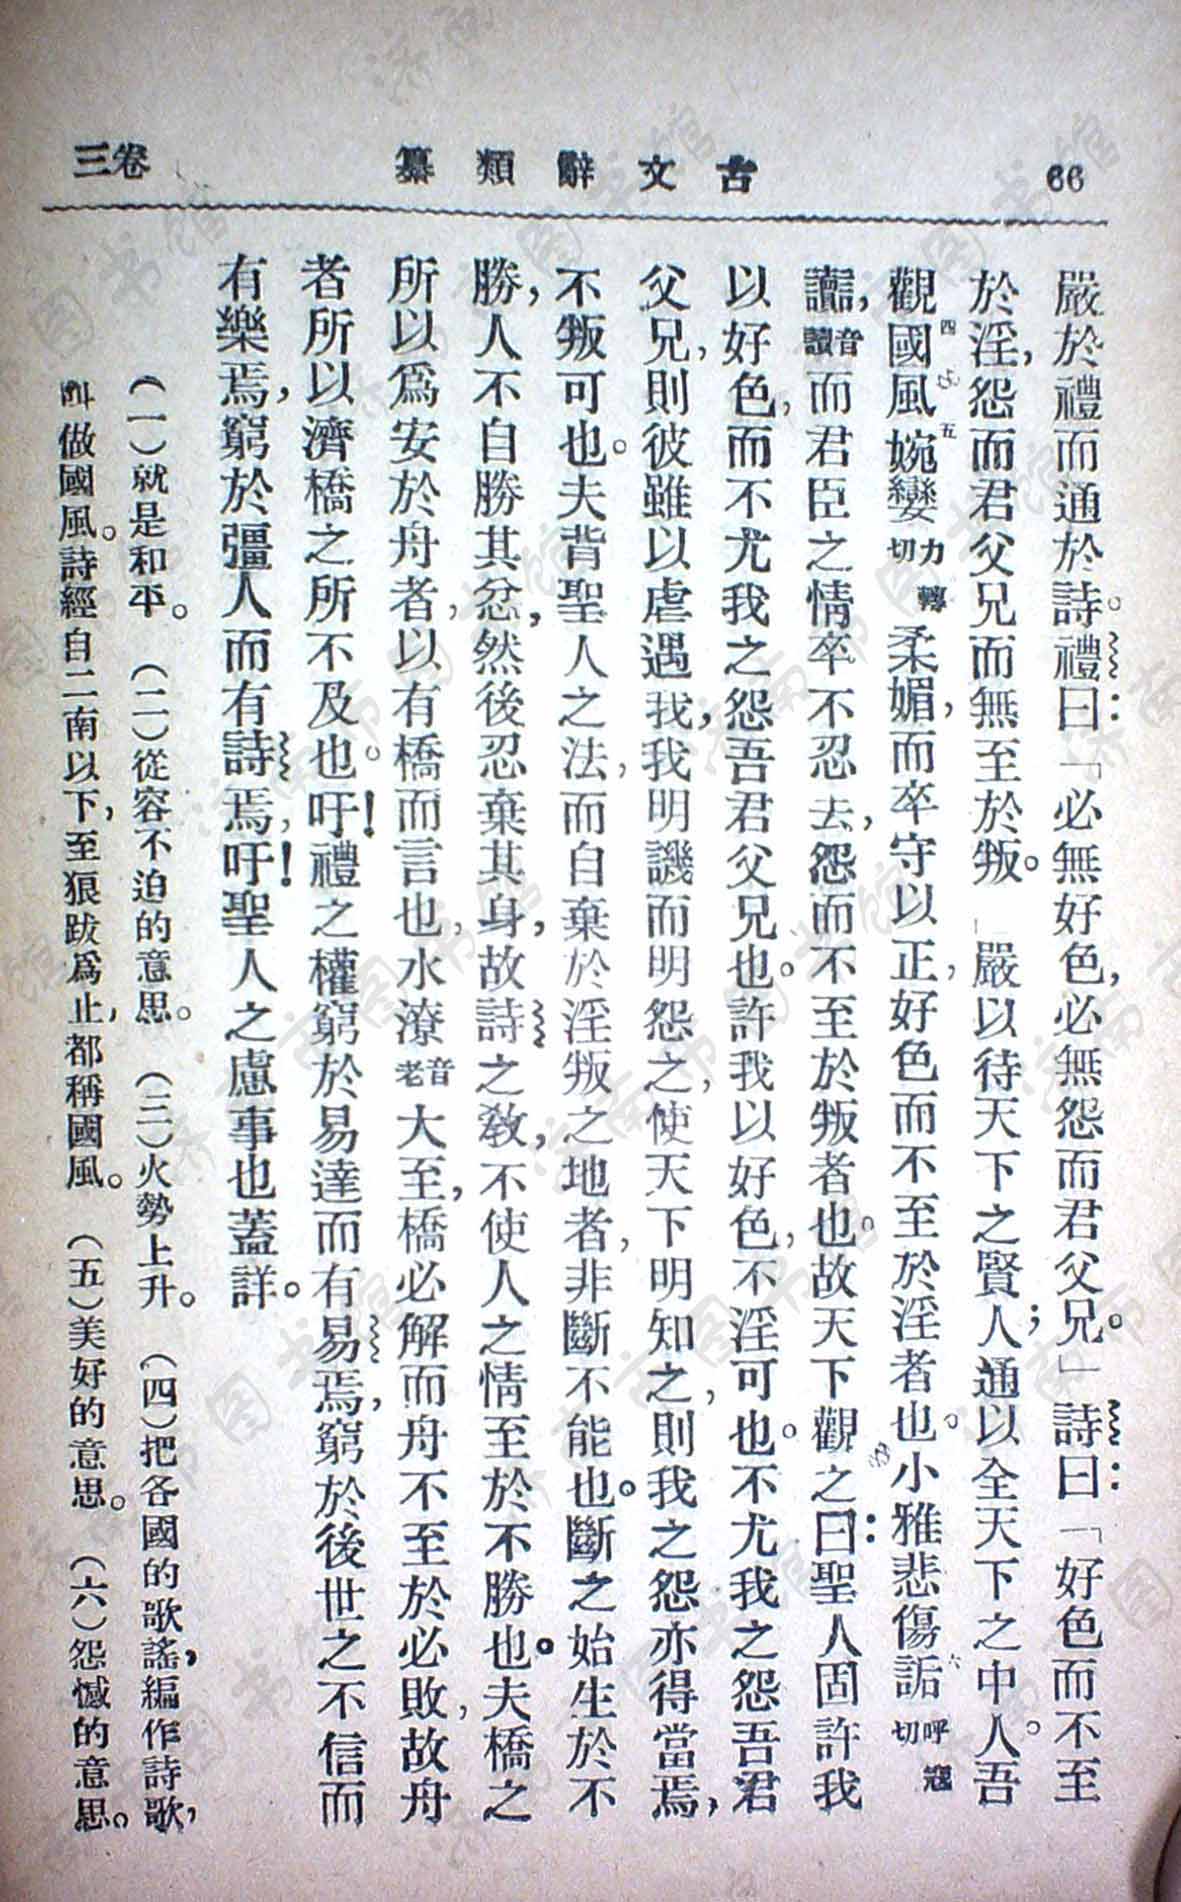 66
古文辭類纂
卷三
嚴於禮而通於詩。禮曰：「必無好色，必無怨而君父兄。」詩曰：「好色而不至
於淫，怨而君父兄而無至於叛。」嚴以待天下之賢人；通以全天下之中人。吾
觀國風四婉孌五力轉切柔媚，而卒守以正，好色而不至於淫者也。小雅悲傷詬六呼寇切
讟，音讀而君臣之情卒不忍去，怨而不至於叛者也。故天下觀之曰：聖人固許我
以好色，而不尤我之怨吾君父兄也。許我以好色，不淫可也。不尤我之怨吾君
父兄，則彼雖以虐遇我，我明譏而明怨之，使天下明知之，則我之怨亦得當焉，
不叛可也。夫背聖人之法，而自棄於淫叛之地者，非斷不能也。斷之始生於不
勝，人不自勝其忿，然後忍棄其身，故詩之敎，不使人之情至於不勝也。夫橋之
所以爲安於舟者，以有橋而言也，水潦音老大至，橋必解而舟不至於必敗，故舟
者所以濟橋之所不及也。吁！禮之權窮於易達而有易焉，窮於後世之不信而
有樂焉，窮於彊人而有詩焉，吁！聖人之慮事也蓋詳。
（一）就是和平。（二）從容不迫的意思。（三）火勢上升。（四）把各國的歌謠，編作詩歌，
叫做國風。詩經自二南以下，至狼跋爲止，都稱國風。（五）美好的意思。（六）怨憾的意思。